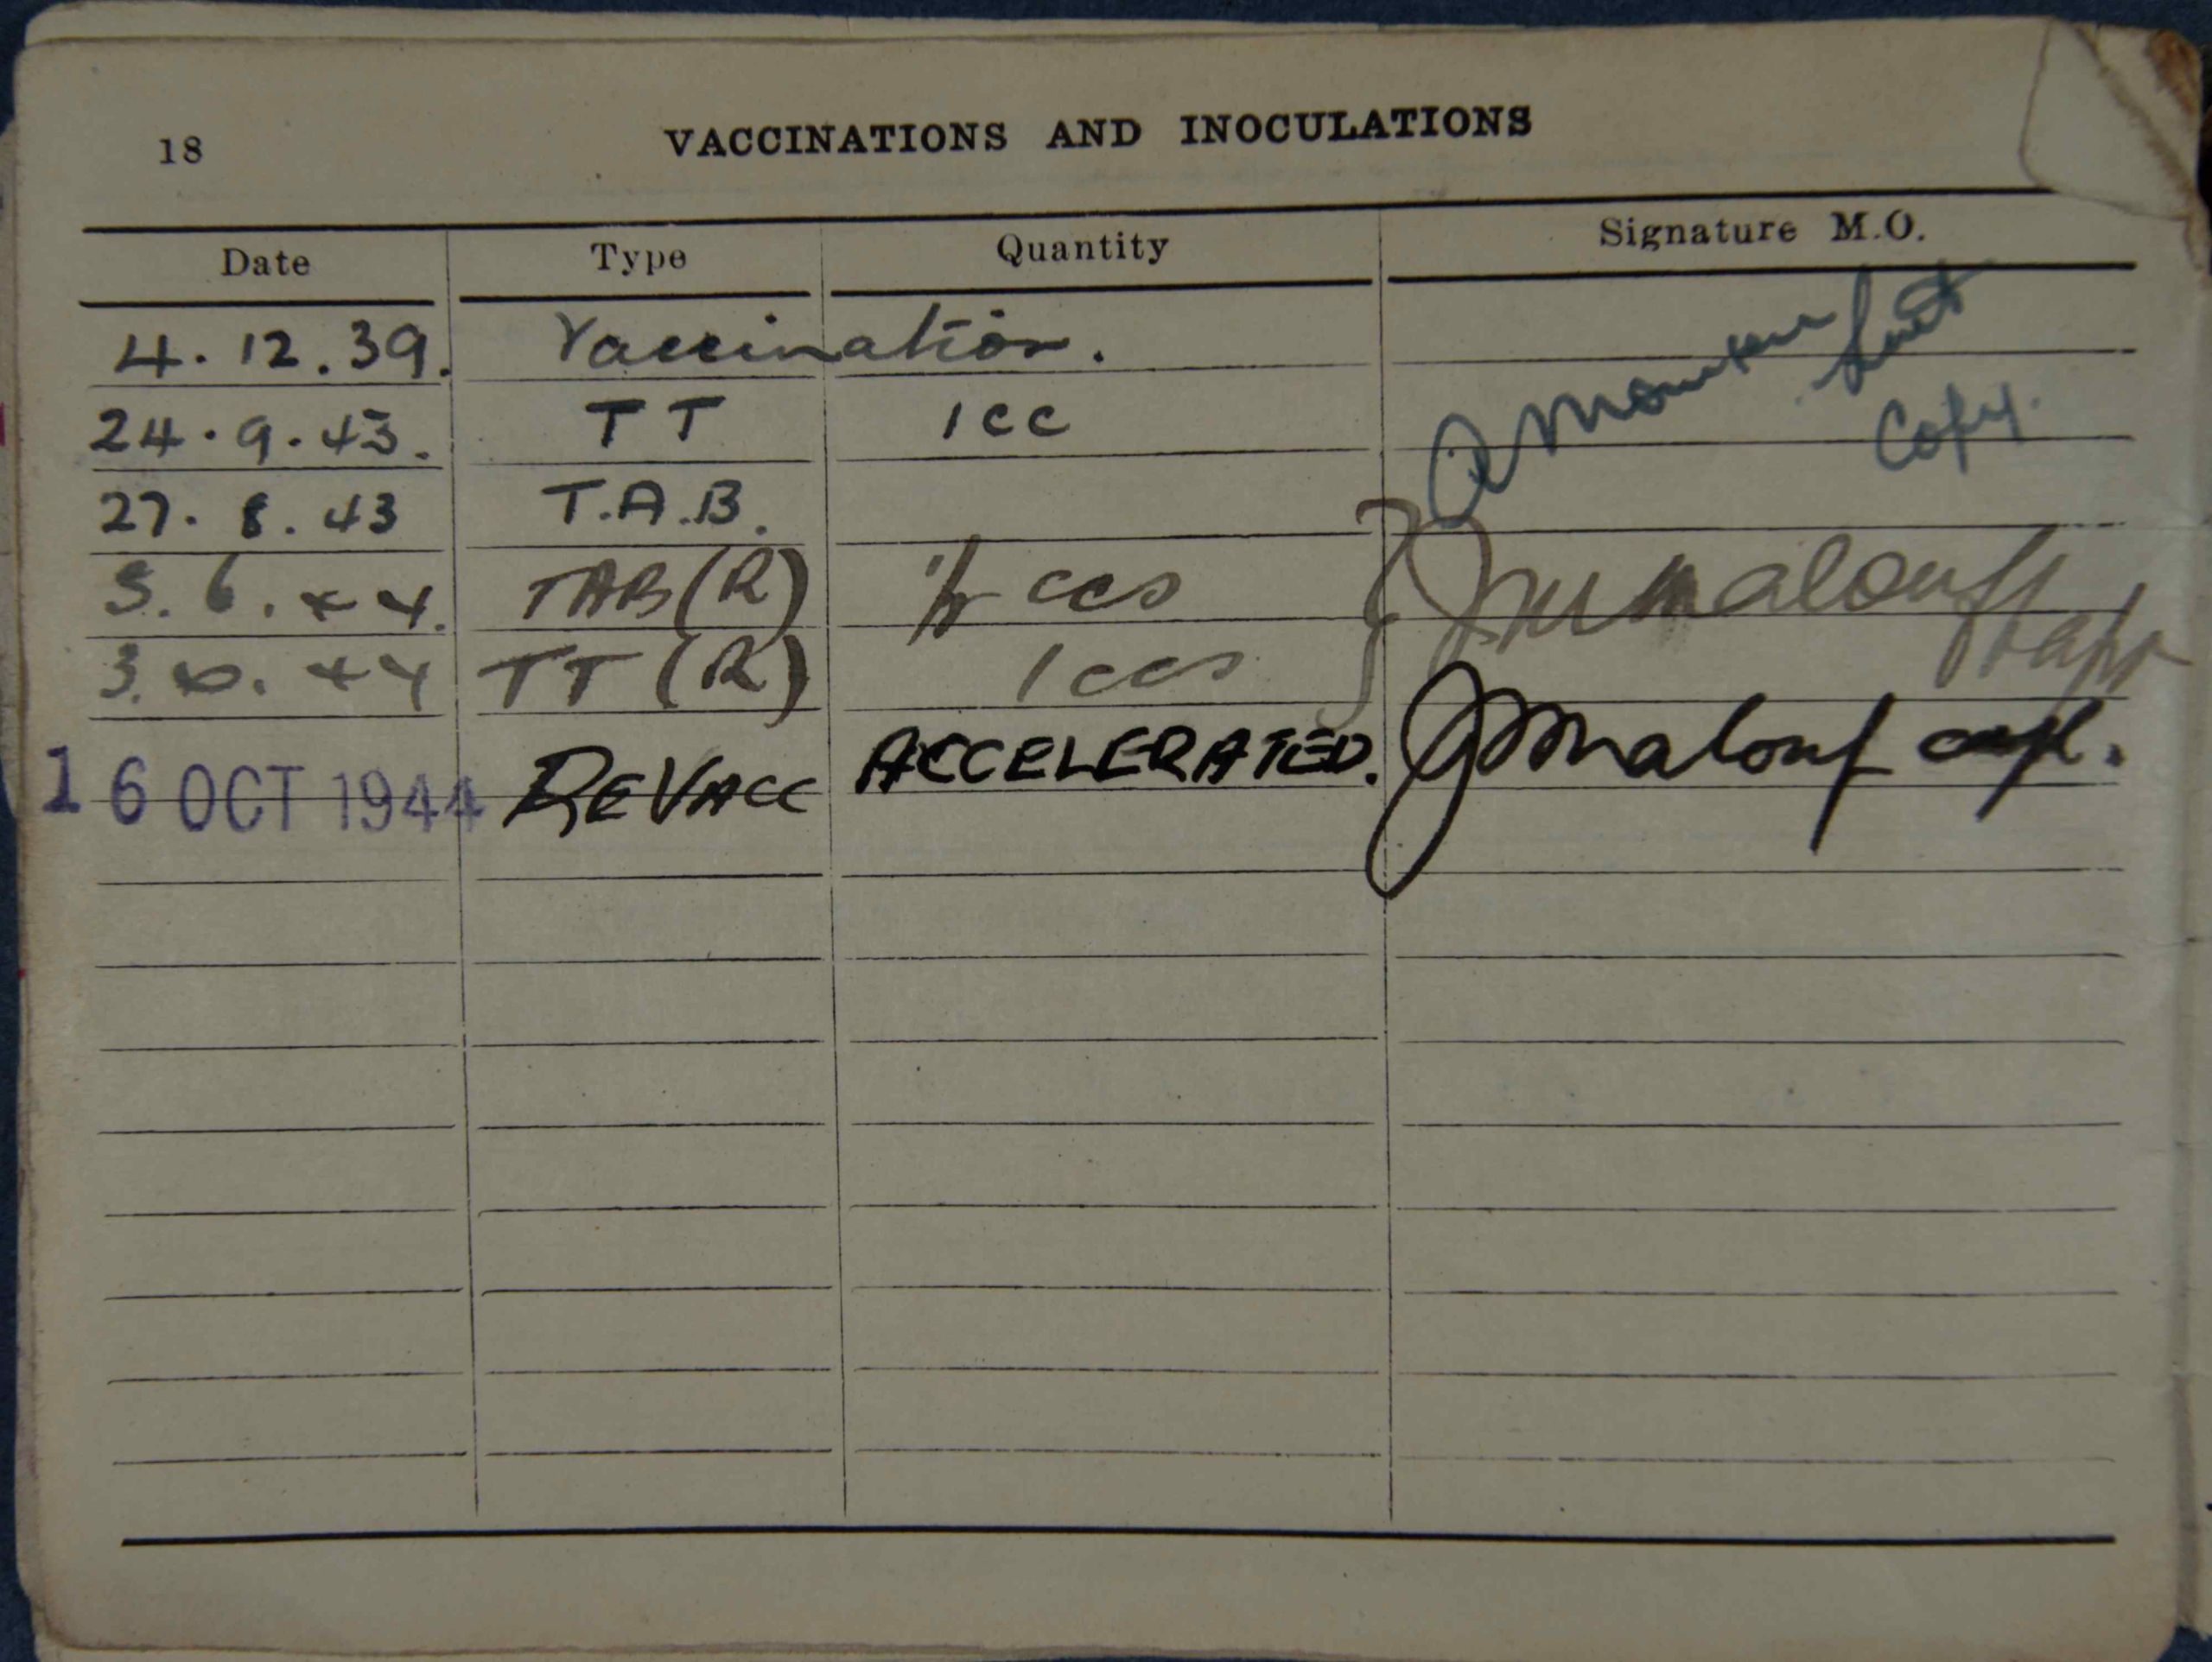 18
VACCINATIONS AND INOCULATIONS
Date Type Quantity Signature M.O.
4.12.39. Vaccination.
24.9.43. TT 1CC Copy.
27.8.43 T.A.B.
TAB (R) 1/2 ccs
TT (R) 1 ccs
16 OCT 1944 REVACC ACCELERATED. JMMalouf capt.